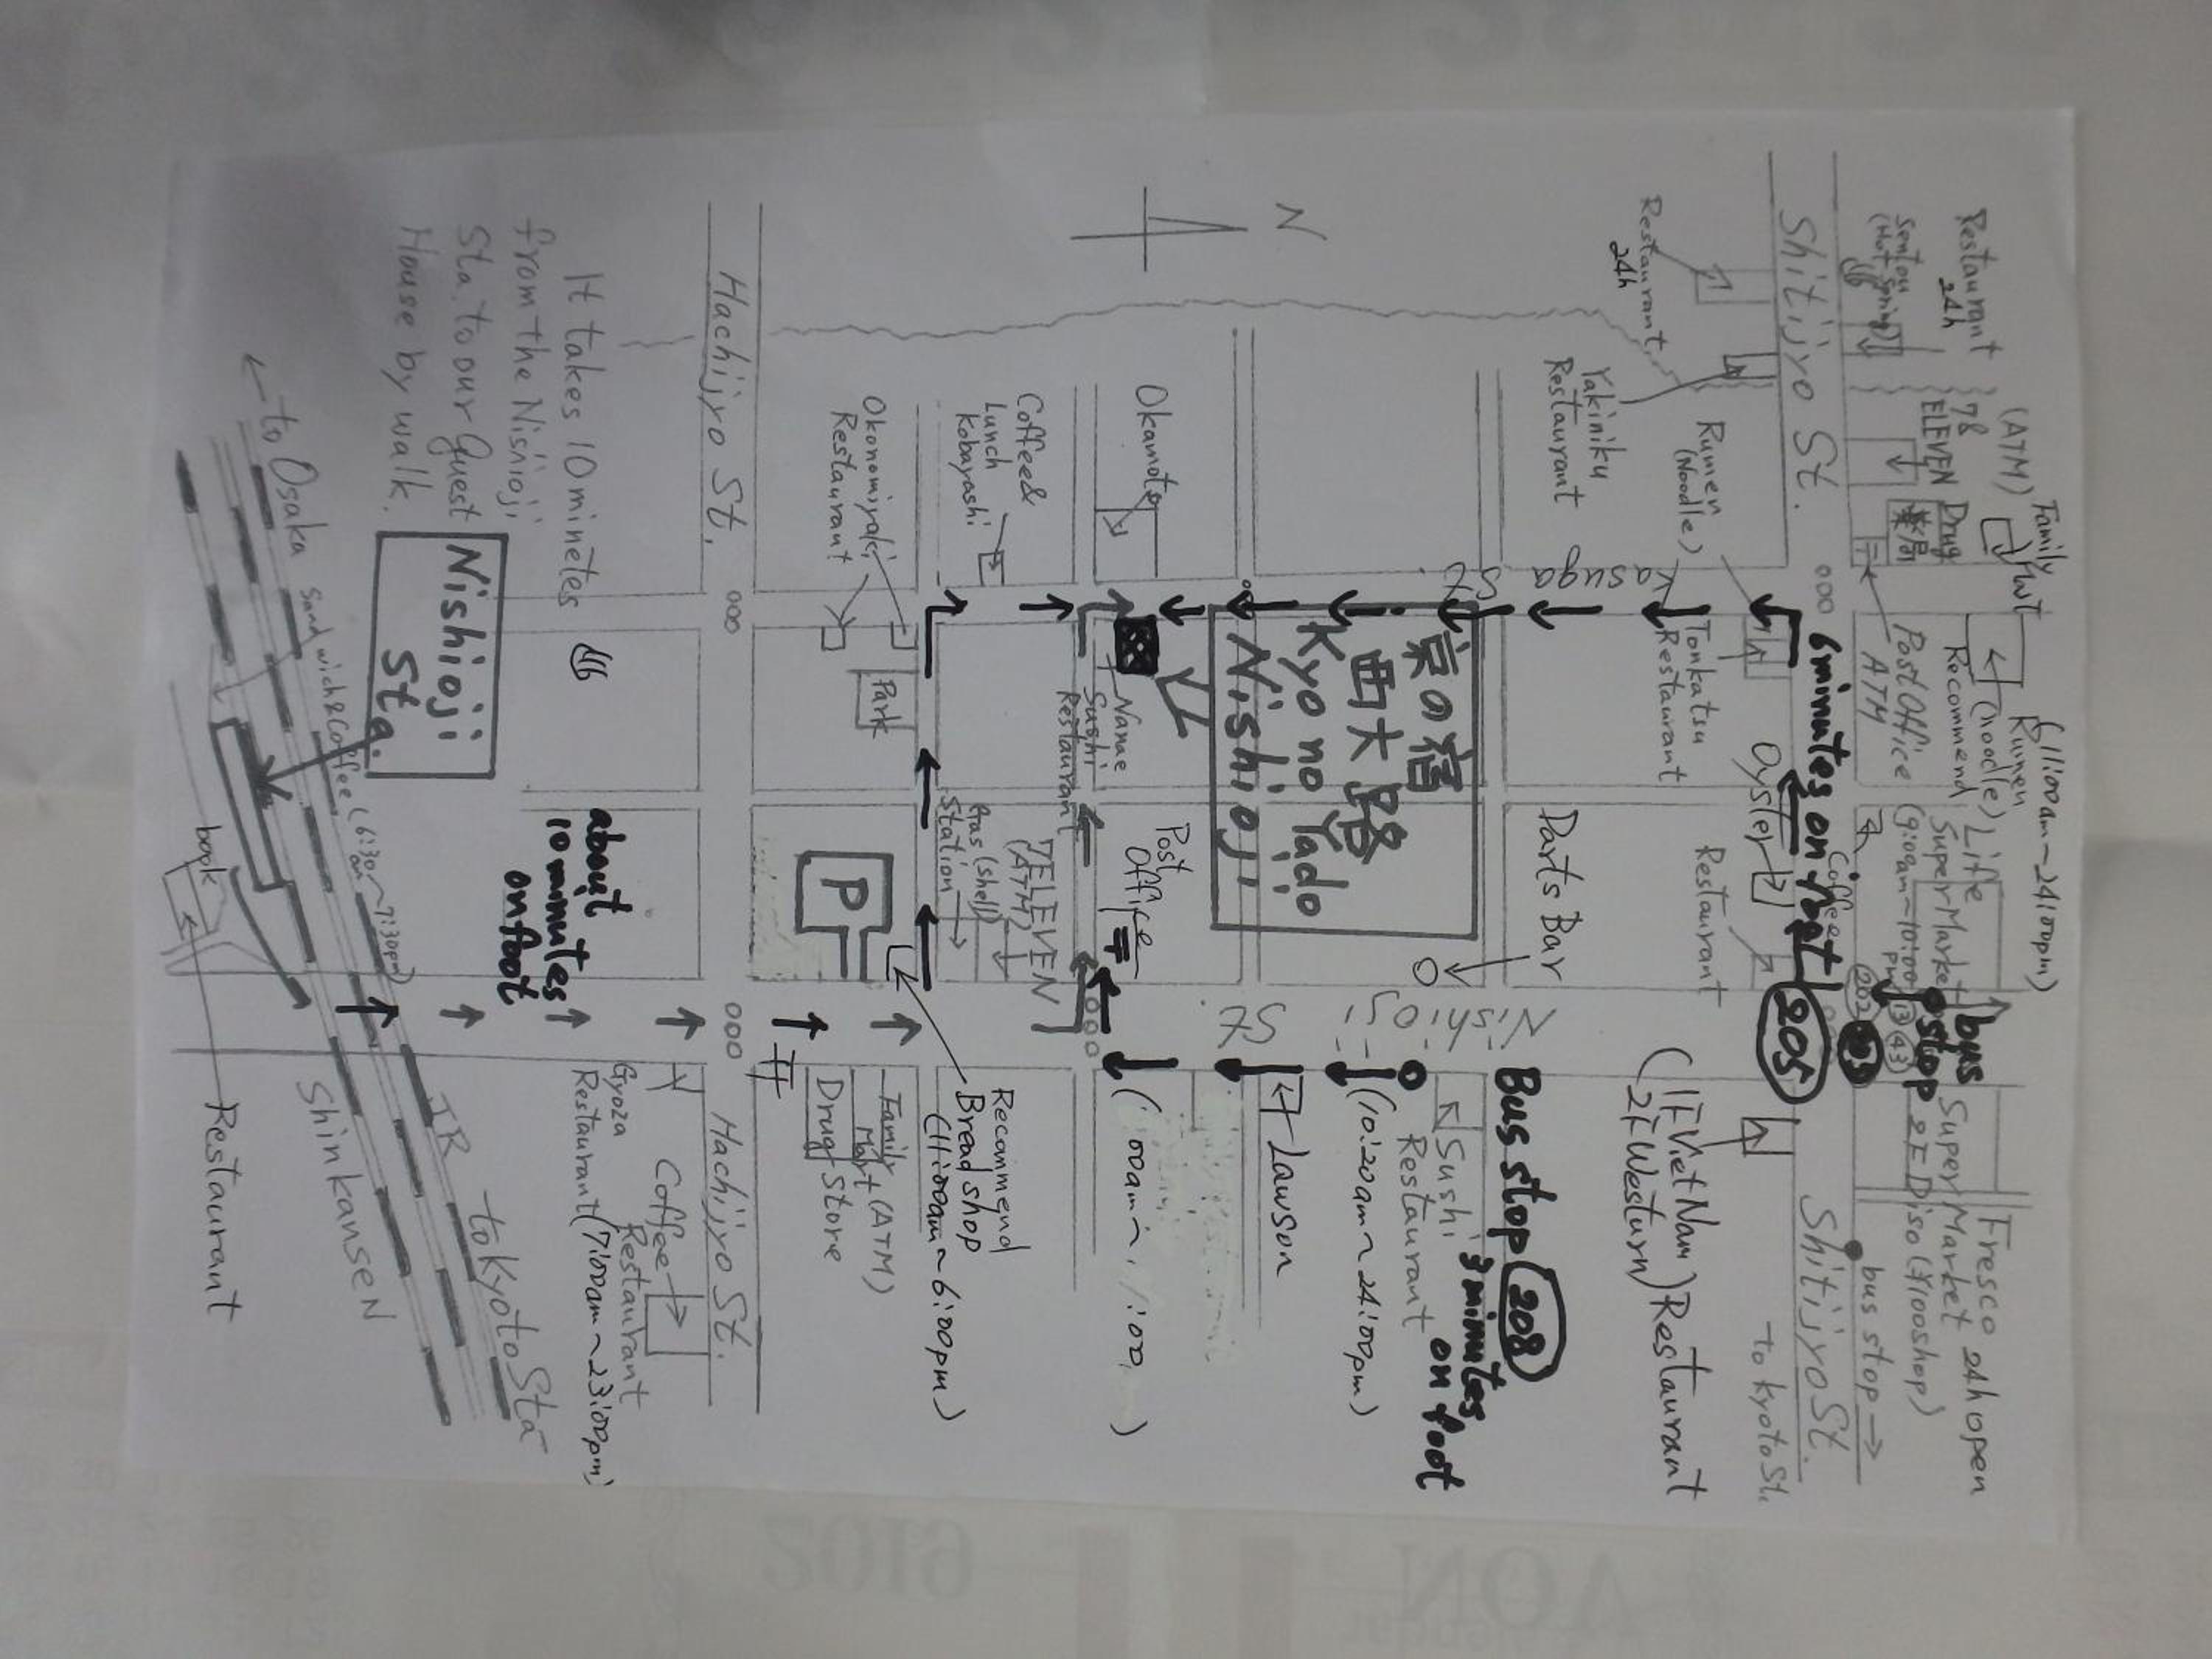 Restaurant
24h
Sentou
(Hot Spring)
(ATM)
7&
ELEVEN
Drug
薬局
Family
Mart
(11:00am~24:00pm)
Rumen
(noodle)
Recomend
Post Office
ATM
Life
Super Market
(9:00am~10:00
pm)
bus
stop
202
13
43
205
Super
Market
2F Diso (¥100shop)
Fresco 24h open
bus stop →
Shitijyo St.
Shitijyo St.
to kyoto St.
Restaurant
24h
Rumen
(Noodle)
Yakiniku
Restaurant
Kasuga
St
6minutes on foot
Tonkatsu
Restaurant
Oyster
Coffee
Restaurant
Parts Bar
(1F VietNam
2F Westurn) Restaurant
Bus stop 208
3minutes
on foot
Sushi
Restaurant
(10:20am~24:00pm)
Lawson
N
京の宿
西大路
Kyo no Yado
Nishioji
Nishioji
St
Okamoto
Coffee &
Lunch
Kobayashi
Okonomiyaki
Restaurant
Nanae
Sushi
Restaurant
Post
Office
7ELEVEN
(ATM)
Gas (shell)
Station
Park
P
Recommend
Bread shop
Family
Mart (ATM)
Drug Store
Hachijyo St.
Hachijyo St.
Coffee
Restaurant
Gyoza
Restaurant
(7:00am~23:00pm)
It takes 10 minetes
from the Nishioji
Sta. to our Guest
House by walk.
about
10 minutes
on foot
Nishioji
Sta.
Sandwich & Coffee (6:30am~7:30pm)
← to Osaka
to kyoto Sta
JR
Shinkansen
book
Restaurant
2019
NOV